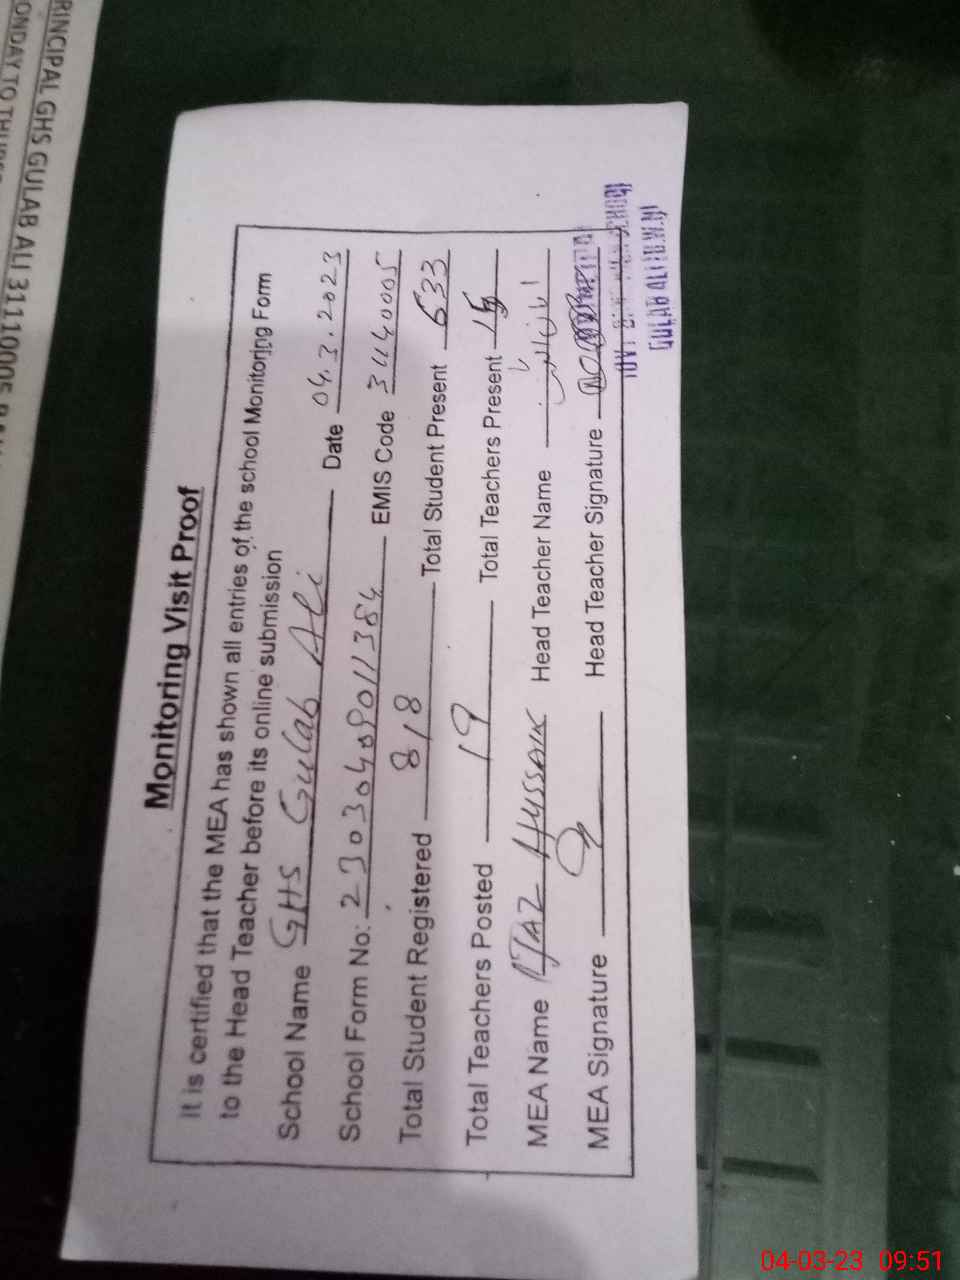 RINCIPAL GHS GULAB ALI 31110005
ONDAY TO
Monitoring Visit Proof
It is certified that the MEA has shown all entries of the school Monitoring Form
to the Head Teacher before its online submission
School Name GHS Gulab Ali Date 04.3.2023
School Form No: 23030409011384 EMIS Code 31140005
Total Student Registered 818 Total Student Present 633
Total Teachers Posted 19 Total Teachers Present 15
MEA Name IJAZ HUSSAIN Head Teacher Name
MEA Signature Head Teacher Signature
GULAB ALI
04-03-23 09:51